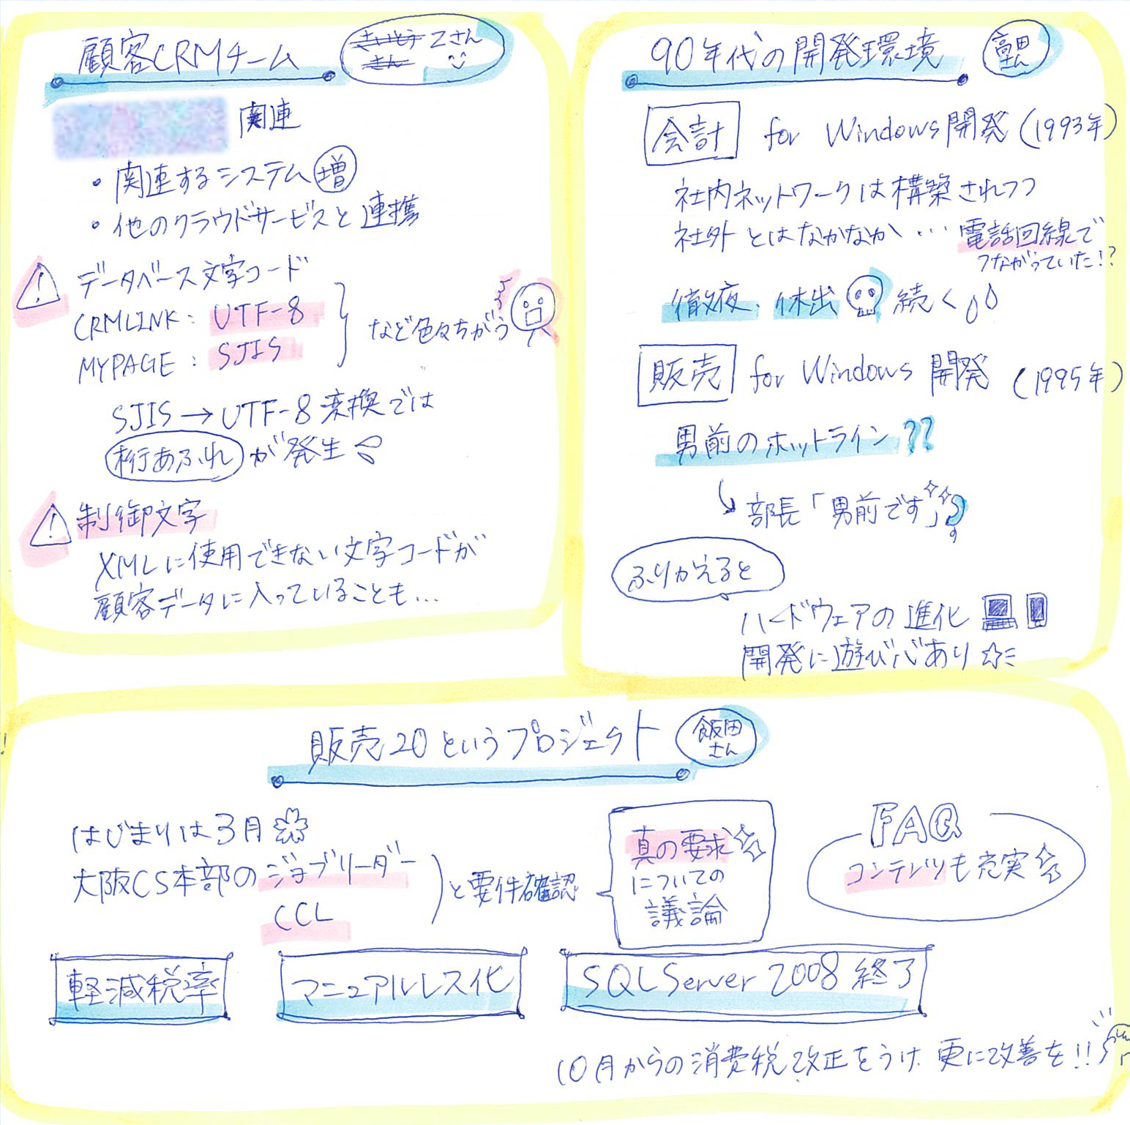 顧客CRMチーム
Zさん
関連
・関連するシステム増
・他のクラウドサービスと連携
データベース文字コード
CRMLINK: UTF-8
MYPAGE: SJIS
など色々ちがう
SJIS→UTF-8変換では
桁あふれが発生
制御文字
XMLに使用できない文字コードが
顧客データに入っていることも…
90年代の開発環境
高田さん
会計 for Windows開発(1993年)
社内ネットワークは構築されつつ
社外とはなかなか…電話回線で
つながっていた!?
徹夜・休出 続く
販売 for Windows 開発 (1995年)
男前のホットライン??
部長「男前です」
ふりかえると
ハードウェアの進化
開発に遊び心あり
販売20というプロジェクト
飯田さん
はじまりは3月
大阪CS本部のジョブリーダー
CCL
と要件確認
真の要求
についての
議論
FAQ
コンテンツも充実
軽減税率
マニュアルレス化
SQLServer 2008 終了
10月からの消費税改正をうけ 更に改善を!!